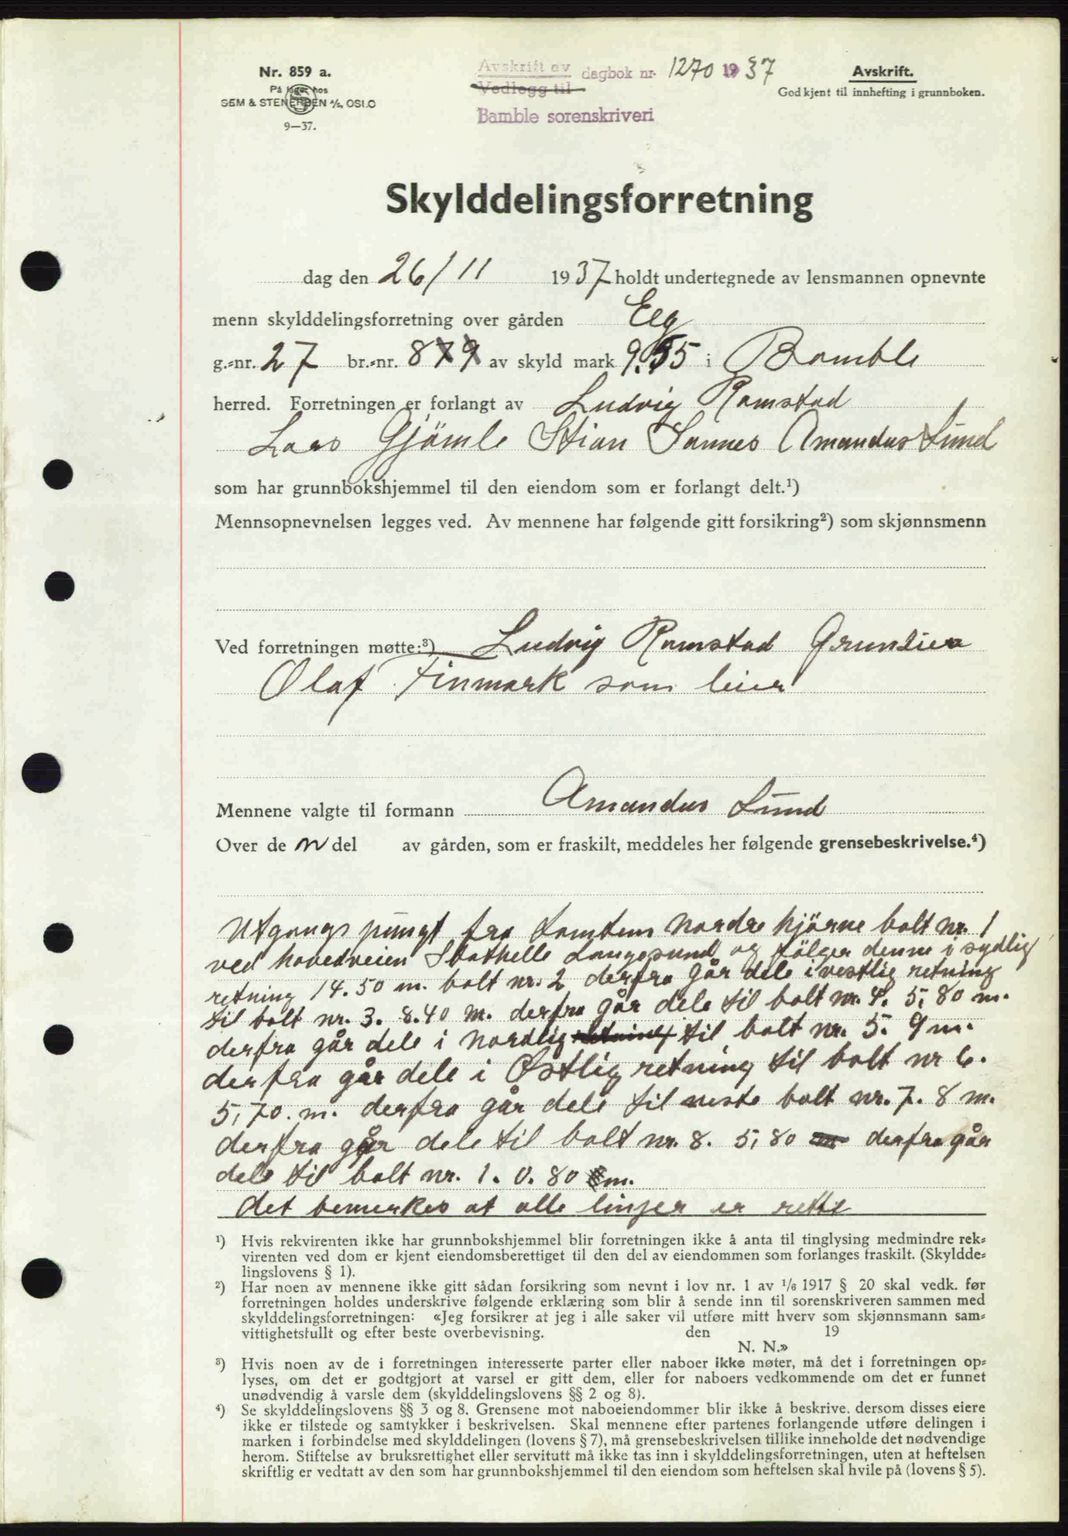 Nr. 859 a.
På lager hos
SEM & STENERSEN A/S, OSLO
9—37.
Avskrift av
Vedlegg til
dagbok nr. 1270 1937
Bamble sorenskriveri
Avskrift.
Godkjent til innhefting i grunnboken.
Skylddelingsforretning
dag den 26/11 1937 holdt undertegnede av lensmannen opnevnte
menn skylddelingsforretning over gården Elg
g.-nr. 27 br.-nr. 879 av skyld mark 9.55 i Bamble
herred. Forretningen er forlangt av Ludvig Ramstad
Lars Gjömle Stian Sannes Amandus Lund
som har grunnbokshjemmel til den eiendom som er forlangt delt.¹)
Mennsopnevnelsen legges ved. Av mennene har følgende gitt forsikring²) som skjønnsmenn
Ved forretningen møtte:³) Ludvig Ramstad
Olaf Finmark som leier
Mennene valgte til formann Amandus Lund
Over de n del av gården, som er fraskilt, meddeles her følgende grensebeskrivelse.⁴)
Utgangs pungt fra tomtens Nordre hjörne bolt nr. 1
ved hovedveien Stathelle Langesund og fölger denne i sydlig
retning 14.50 m. bolt nr. 2 derfra går dele i vestlig retning
til bolt nr. 3. 8.40 m. derfra går dele til bolt nr. 4. 5,80 m.
derfra går dele i Nordlig retning til bolt nr. 5. 9 m.
derfra går dele i Østlig retning til bolt nr 6.
5,70. m. derfra går dele til neste bolt nr. 7. 8 m.
derfra går dele til bolt nr. 8. 5,80 m derfra går
dele til bolt nr. 1. 0.80 m.
det bemerkes at alle linjer er rette
¹) Hvis rekvirenten ikke har grunnbokshjemmel blir forretningen ikke å anta til tinglysing medmindre rek-
virenten ved dom er kjent eiendomsberettiget til den del av eiendommen som forlanges fraskilt. (Skyldde-
lingslovens § 1).
²) Har noen av mennene ikke gitt sådan forsikring som nevnt i lov nr. 1 av ¹/₆ 1917 § 20 skal vedk. før
forretningen holdes underskrive følgende erklæring som blir å sende inn til sorenskriveren sammen med
skylddelingsforretningen: «Jeg forsikrer at jeg i alle saker vil utføre mitt hverv som skjønnsmann sam-
vittighetsfullt og efter beste overbevisning. den 19
N. N.»
³) Hvis noen av de i forretningen interesserte parter eller naboer ikke møter, må det i forretningen op-
lyses, om det er godtgjort at varsel er gitt dem, eller for naboers vedkommende om det er funnet
unødvendig å varsle dem (skylddelingslovens §§ 2 og 8).
⁴) Se skylddelingslovens §§ 3 og 8. Grensene mot naboeiendommer blir ikke å beskrive. dersom disses eiere
ikke er tilstede og samtykker i beskrivelsen. Skal mennene efter partenes forlangende utføre delingen i
marken i forbindelse med skylddelingen (lovens § 7), må grensebeskrivelsen tillike inneholde det nødvendige
herom. Stiftelse av bruksrettighet eller servitutt må ikke tas inn i skylddelingsforretningen, uten at heftelsen
skriftlig er vedtatt av den som har grunnbokshjemmel til den eiendom som heftelsen skal hvile på (lovens § 5).